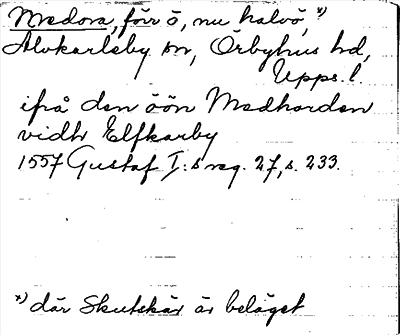 Medora, förr ö, nu halvö, x)
Älvkarleby sn, Örbyhus hd,
Upps. l.
ifrå den öön Medhorden
vidh Elfkarby
1557 Gustaf I:s reg. 27, s. 233.
x) där Skutskär är beläget